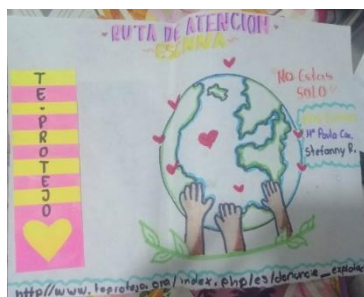 RUTA DE ATENCION
ESCNNA
TE-PROTEJO
No Estas
SOLO!!
Mª Paula Ca.
Stefanny R.
http//www.teprotejo.org/index.php/es/denuncie_explotac